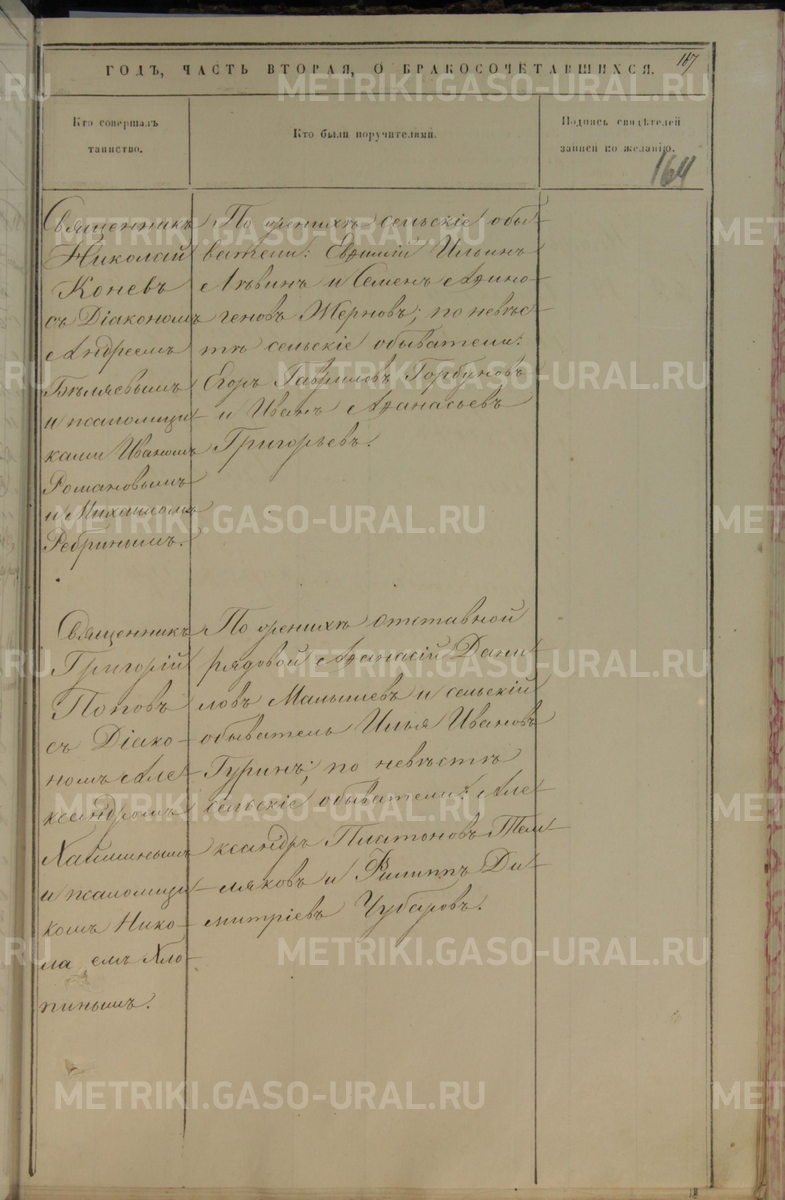 167
ГОДЪ, ЧАСТЬ ВТОРАЯ, О БРАКОСОЧЕТАВШИХСЯ.
Кто совершалъ
таинство.
Кто были поручителями.
Подпись свидѣтелей
записи по желанію.
164
Священникъ
Николай
Коневъ
съ Діакономъ
Андреемъ
Бѣляевымъ
и псаломщи
ками Иваномъ
Романовымъ
и Михаиломъ
Ребринымъ.
По женихѣ сельскіе обы
ватели: Евѳимій Ильинъ
и Семенъ Аѳино
геновъ Жерновъ; по невѣс
тѣ сельскіе обыватели:
Егоръ Гавриловъ Горбуновъ
и Иванъ Аѳанасьевъ
Григорьевъ.
Священникъ
Григорій
Поповъ
съ Діако-
номъ Але
ксандромъ
и псаломщи
комъ Нико-
лаемъ Хло-
пинымъ.
По женихѣ отставной
рядовой Аѳанасій Дани
ловъ Малышевъ и сельскій
обыватель Илья Ивановъ
Гуринъ; по невѣстѣ
сельскіе обыватели: Але
ксандръ Платоновъ Тем
ляковъ и Филиппъ Ди
митріевъ Чубаровъ.
METRIKI.GASO-URAL.RU